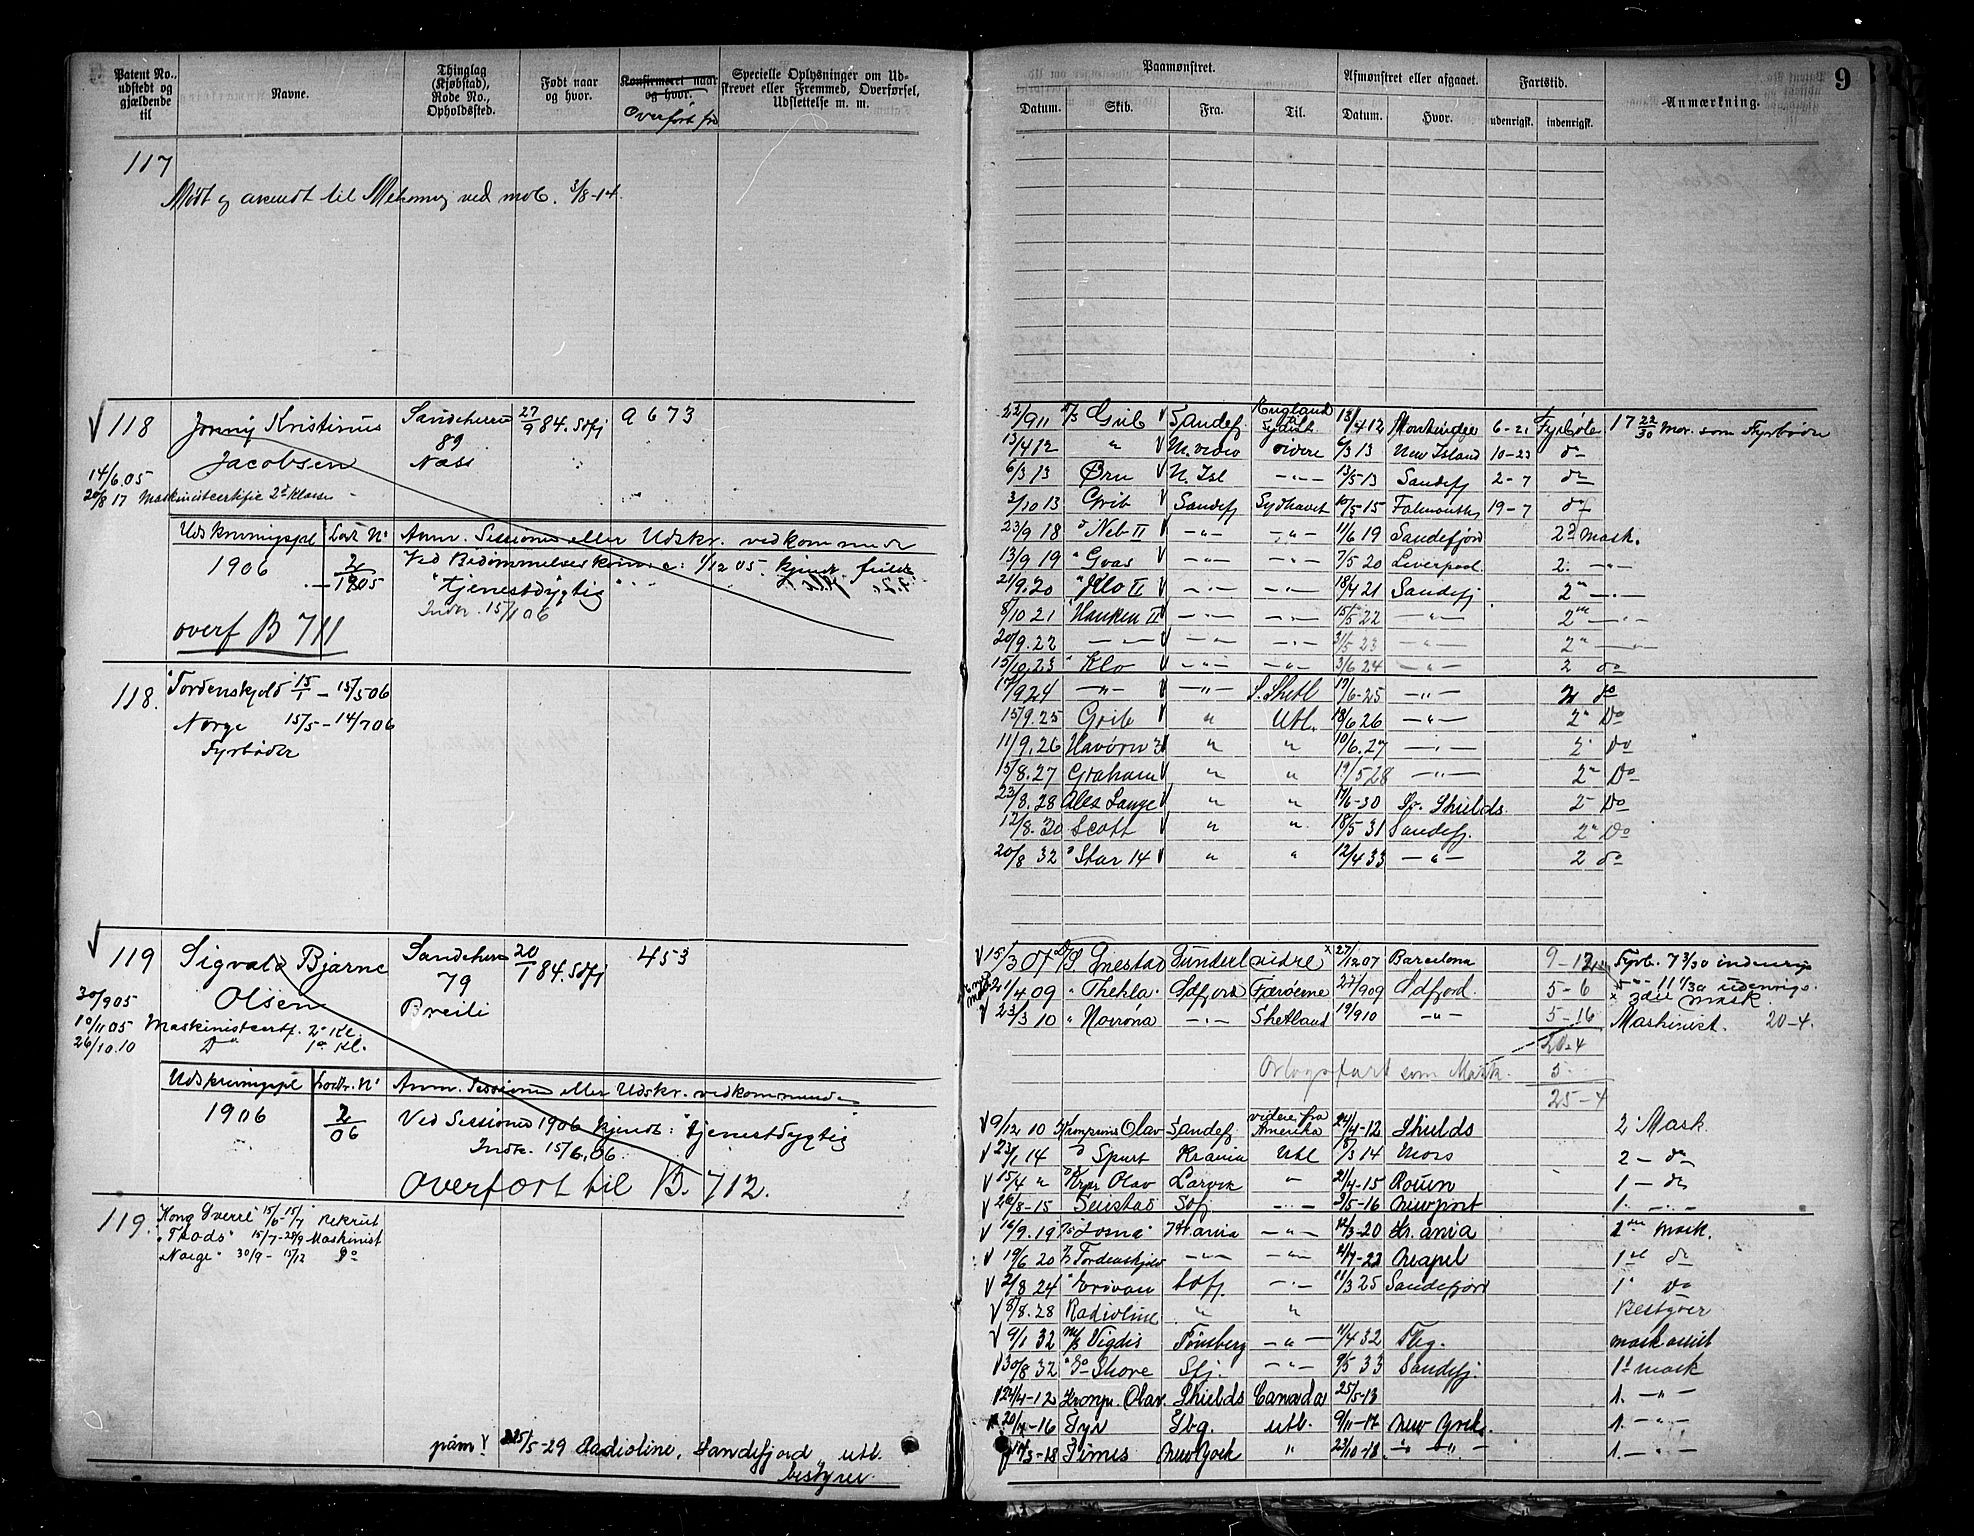 9
Patent No., udstedt og gjældende til
Navne.
Thinglag (Kjøbstad), Rode No., Opholdssted.
Født naar og hvor.
Konfirmeret naar og hvor.
Overført fra
Specielle Oplysninger om Udstrevet eller Fremmed, Overførsel, Udslettelse m. m.
Paamønstret.
Datum. Skib. Fra. Til.
Afmønstret eller afgaaet.
Datum. Hvor.
Fartstid.
udenrigsk. indenrigsk.
Anmærkning.
117
Mødt og avsendt til ved mob. 3/8-14.
V 118 Jonny Kristinius Sandeherre 27/9 84. Sdfj 9673
Jacobsen 89
Næss
14/6.05
20/8 17 Maskinistcertific 2d Klasse
Udskrivningspl Lodt N° Anm. Sessionen eller Udskr. vedkommende
1906 2/1905 Ved Bedømmelseskomm. 1/12 05. kjendt
"tjenestdygtig"
Indk. 15/1 06
overf B 711
118. "Tordenskjold" 15/1 - 15/5 06
Norge 15/5 - 14/7 06
Fyrbøder
V 119 Sigvald Bjarne Sandeherre 20/1 84. Sdfj 453
Olsen 79
Breili
30/9 05
10/11 05 Maskinistcertf. 2n Kl.
26/10.10 Do 1n Kl.
Udskrivningspl Lodtr. N° Anm. Sessionen eller Udskr. vedkommende
1906 2/06 Ved Sessionen 1906 kjendt: "tjenestdygtig"
Indk. 15/6.06
Overført til B. 712.
119. "Kong Sverre" 15/6-15/7 Rekrut
15/7-28/9 Maskinist
"Norge" 30/9 - 15/12 Do
paam! 25/5-29 Radioline, Sandefjord, utl.
bestyrer.
22/9 11 Grib V Sandef. England Sydish. 13/4 12 Montevideo 6-21 Fyrbøter 17 22/30 Mdr. som Fyrbøder
13/4 12 " V M. video videre 6/3 13 New Island 10-23 do
6/3 13 Ørn V N. Isl -"- 13/5-13 Sandefj 2-7 do
3/10 13 Grib V Sandefj Sydhavet 10/5-15 Falmouth 19-7 do
23/9 18 " Neb II -"- -"- 11/6 19 Sandefjord 2d Mask.
13/9 19 " Gvas V -"- -"- 7/5 20 Liverpool 2. -"-
21/9.20 " Klo II V -"- -"- 18/4 21 Sandefj 2" -"-
8/10 21 Hauken II V -"- -"- 15/5 22 -"- 2" -"-
20/9.22 -"- V -"- -"- 31/5 23 -"- 2" -"-
15/10.23 " Klo V -"- -"- 3/6 24 -"- 2 do
17/9 24 -"- V -"- S. Shetl 19/6-25 -"- 2 do
15/9.25 Grib V " Utl. 18/6 26 -"- 2" Do
11/9.26 Havørn V " " 10/6.27 -"- 2" Do
15/8.27 Graham V " " 19/5 28 -"- 2" Do
23/8.28 Alex Lange V " " 17/6-30 So. Shields 2" Do
12/8.30 Scott V " " 18/5 31 Sandefj. 2" Do
20/8 32 " Star 14 V " " 12/4 33 -"- 2 do
V 15/3 07 D/S Gnestad Sunderl videre 27/12 07 Barcelona 9-12 Fyrb. 7 3/30 indenrigs
21/4 09 " Thekla Sdfjord Færøerne 22/9 09 Sdfjord. 5-6 -"- 11 1/30 udenrigs.
x 2den Mask.
V 23/3 10 " Norrøna -"- Shetland 19/9 10 -"- 5-16 Maskinist. 20-4.
20-4
Orlogsfart som Mask. 5-
25-4
V 9/12 10 Kronprins Olav Sandef. videre fra Amerika 24/4-12 Shields 2 Mask.
V 23/1 14 " Spurt Krania Utl 18/3 14 Moss 2 - do
V 15/4 " Kpr Olav Larvik " 21/4-15 Rouen 1 - do
V 26/8-15 Sfj -"- 3/5-16 Newport 1. -"-
V 16/9.19 -"- 12/3-20 Kr.ania 2den Mask.
V 19/6 20 Tordenskjold -"- -"- 12/7-22 Neapel 1st do
V 2/8 24 " Erivan Sdfj. -"- 11/3 25 Sandefjord 1" Do
V 5/8.28 Radioline " " Bestyrer
V 9/1 32 M/S Vigdis Tønsberg -"- 11/4 32 Tbg. mask. assist
V 30/8 32 " Skove Sfj. -"- 9/5 33 Sandefj. 1st mask
V 24/4-12 Kronpr. Olav. Shields Canada 25/5-13 1. -"-
20/4-16 Tyr Tbg. utl. 9/11-17 New York. 1. -"-
V 14/3-18 Fimes New York " 23/10-18. -"- -"- 1. -"-